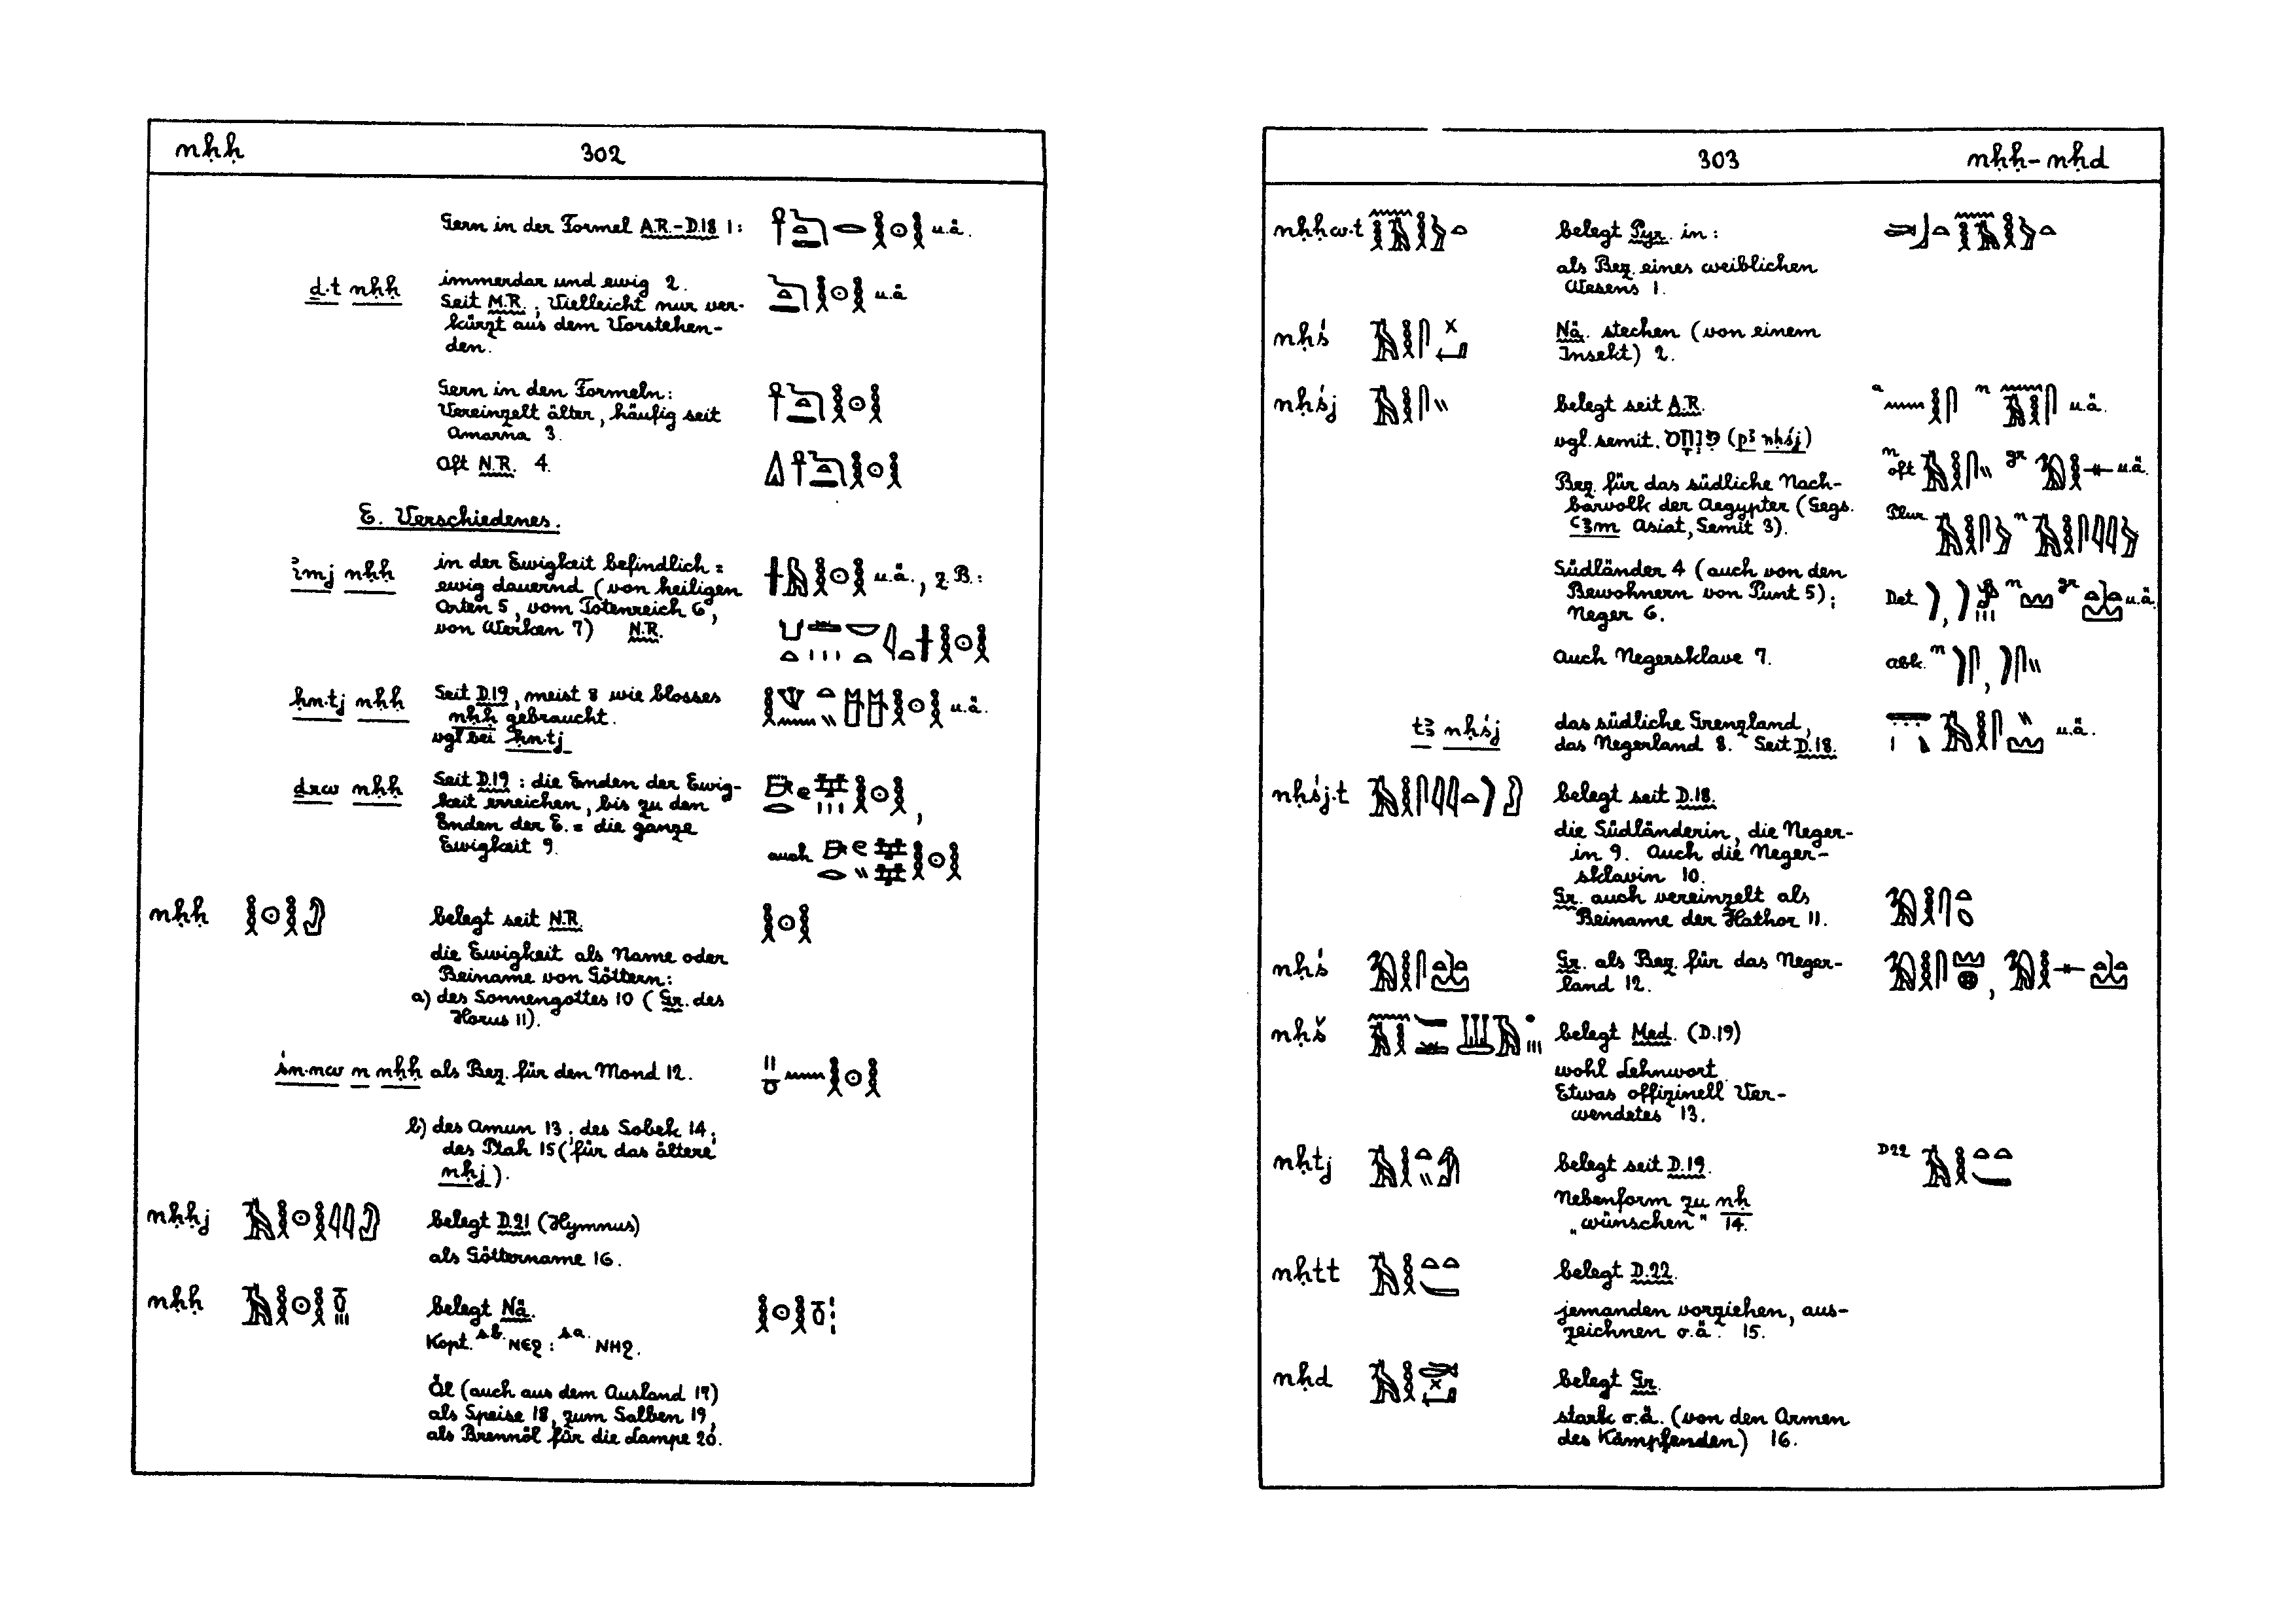 nḥḥ 302
Gern in der Formel A.R.-D.18 1: u.ä.
ḏ.t nḥḥ immerdar und ewig 2. u.ä
Seit M.R.; Vielleicht nur ver-
kürzt aus dem Vorstehen-
den.
Gern in den Formeln:
Vereinzelt älter, häufig seit
Amarna 3.
Oft N.R. 4.
E. Verschiedenes.
imj nḥḥ in der Ewigkeit befindlich = u.ä., z.B.:
ewig dauernd (von heiligen
Orten 5, vom Totenreich 6,
von Werken 7) N.R.
ḥn.tj nḥḥ Seit D.19, meist 8 wie blosses u.ä.
nḥḥ gebraucht.
vgl bei ḥn.tj
ḏrw nḥḥ Seit D.19: die Enden der Ewig-
keit erreichen, bis zu den
Enden der E. = die ganze
Ewigkeit 9. auch
nḥḥ belegt seit N.R.
die Ewigkeit als Name oder
Beiname von Göttern:
a) des Sonnengottes 10 (Gr. des
Horus 11).
śn.nw n nḥḥ als Bez. für den Mond 12.
b) des Amun 13; des Sobek 14;
des Ptah 15 (für das ältere
nḥj).
nḥḥj belegt D.21 (Hymnus)
als Göttername 16.
nḥḥ belegt Nä.
Kopt. s.b. ⲛⲉϩ : s.a. ⲛⲏϩ.
Öl (auch aus dem Ausland 17)
als Speise 18, zum Salben 19,
als Brennöl für die Lampe 20.
303 nḥḥ-nḥd
nḥḥw.t belegt Pyr. in:
als Bez. eines weiblichen
Wesens 1.
nḥś Nä. stechen (von einem
Insekt) 2.
nḥśj belegt seit A.R. a n u.ä.
vgl. semit. פִּנְחָס (pꜣ nḥśj)
n oft gr u.ä.
Bez. für das südliche Nach-
barvolk der Aegypter (Gegs.
ꜥꜣm Asiat, Semit 3). Plur n
Südländer 4 (auch von den
Bewohnern von Punt 5); Det , n gr u.ä.
Neger 6.
Auch Negersklave 7. abk. n ,
tꜣ nḥśj das südliche Grenzland, u.ä.
das Negerland 8. Seit D.18.
nḥśj.t belegt seit D.18.
die Südländerin, die Neger-
in 9. Auch die Neger-
sklavin 10.
Gr. auch vereinzelt als
Beiname der Hathor 11.
nḥś Gr. als Bez. für das Neger-
land 12.
nḥš belegt Med. (D.19)
wohl Lehnwort
Etwas offizinell Ver-
wendetes 13.
nḥtj belegt seit D.19. D22
Nebenform zu nḥ
„wünschen" 14.
nḥtt belegt D.22.
jemanden vorziehen, aus-
zeichnen o.ä. 15.
nḥd belegt Gr.
stark o.ä. (von den Armen
des Kämpfenden) 16.